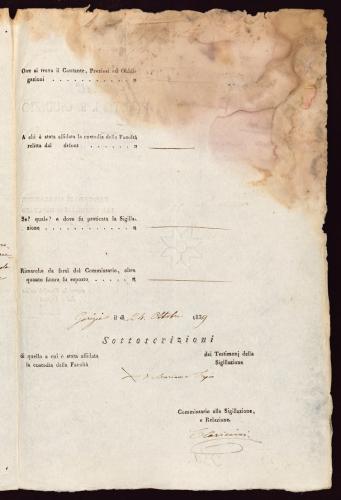 Ove si trova il Contante, Preziosi ed Obbli-
gazioni . . . . . . . . . . . »
A chi è stata affidata la custodia della Facoltà
relitta dal defunto . . . . . . . . »
Se? quale? e dove fu praticata la Sigilla-
zione . . . . . . . . . . . . »
Rimarche da farsi dal Commissario, oltre
quanto finora fu esposto . . . . . . »
il dì 24 Ottobre 1829
Sottoscrizioni
di quello a cui è stata affidata
la custodia della Facoltà
dei Testimonj della
Sigillazione
Commissario alla Sigillazione,
e Relazione.